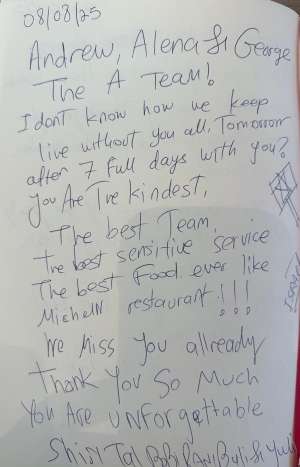 08/08/25
Andrew, Alena & George
The A Team!
I dont know how we keep
live without you all, Tomorrow
after 7 full days with you?
you Are The kindest,
The best Team,
the best sensitive service
The best Food ever like
Micheln restaurant!!!
We Miss you allready
Thank You So Much
You Are unforgattable
Shiri Tal